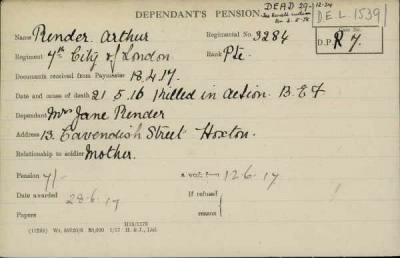 DEPENDANT'S PENSION.
DEAD 29-12-24
D.E.L. 1539
Name Render. Arthur Regimental No. 3284
Regiment 7th City of London. Rank Pte.
D.P. R 7.
Documents received from Paymaster 18.4.17.
Date and cause of death 21.5.16 Killed in action. B.E.F
Dependant Mrs Jane Render
Address 13. Cavendish Street Hoxton.
Relationship to soldier Mother.
Pension 7/- 12.6.17
Date awarded 28.6.17 If refused
Papers reason